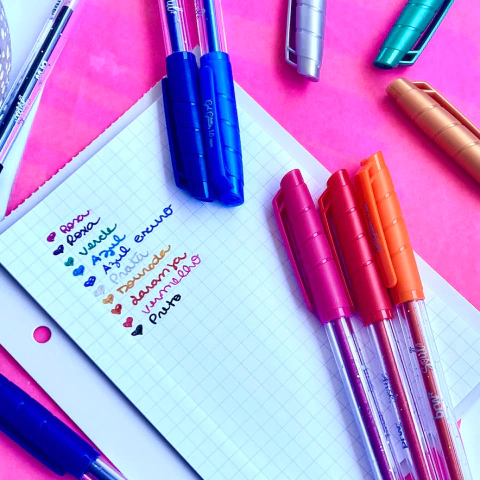 Rosa
Roxa
Verde
Azul
Azul escuro
Prata
Dourada
Laranja
Vermelho
Preto